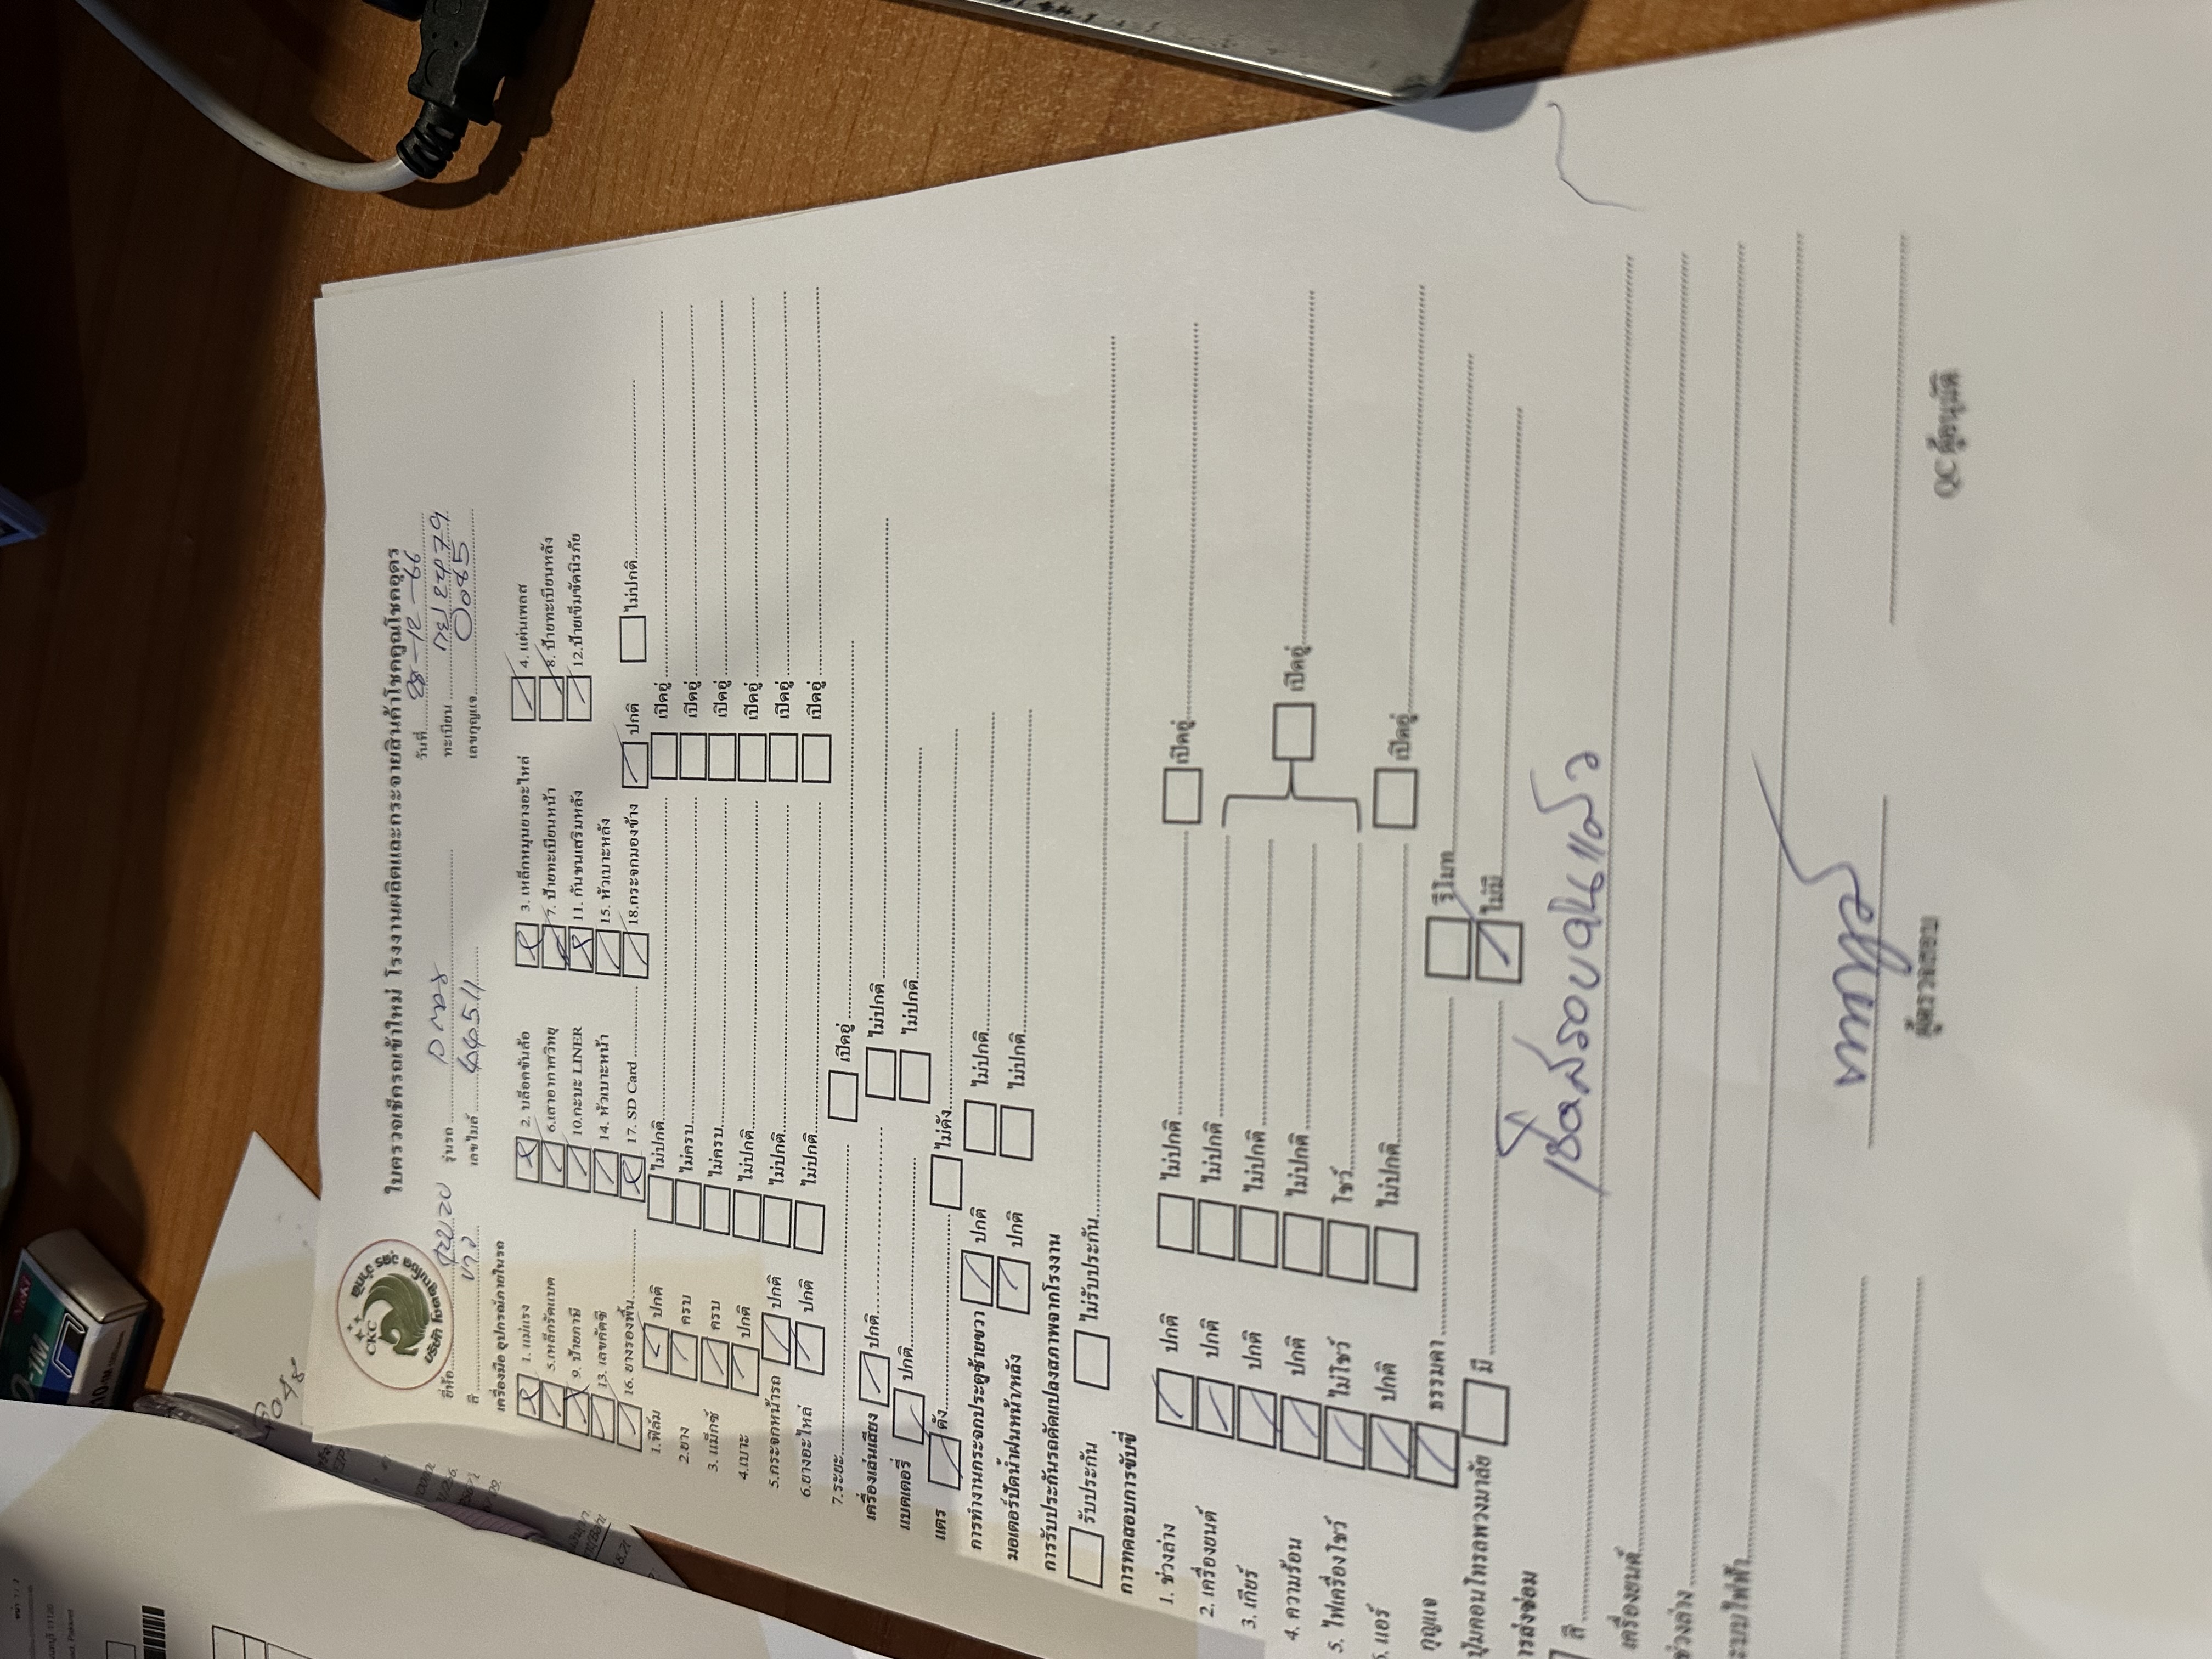 ใบตรวจเช็ครถเข้าใหม่ โรงงานผลิตและกระจายสินค้าโชคคูณโชคอุดร
CKC
วันที่ 28-12-66
ยี่ห้อ อีซูซุ รุ่นรถ D max ทะเบียน
สี ขาว เลขไมล์ เลขกุญแจ 0085
เครื่องมือ อุปกรณ์ภายในรถ
1. แม่แรง 2. บล็อกขันล้อ 3. เหล็กหมุนยางอะไหล่ 4. แผ่นเพลส
5.เหล็กรัดแบต 6.เสาอากาศวิทยุ 7. ป้ายทะเบียนหน้า 8. ป้ายทะเบียนหลัง
9. ป้ายภาษี 10.กะบะ LINER 11. กันชนเสริมหลัง 12.ป้ายเข็มขัดนิรภัย
13. เลขคัสซี 14. หัวเบาะหน้า 15. หัวเบาะหลัง
16. ยางรองพื้น 17. SD Card 18.กระจกมองข้าง ปกติ ไม่ปกติ
1.ฟิล์ม ปกติ ไม่ปกติ เปิดอู่
2.ยาง ครบ ไม่ครบ เปิดอู่
3. แม็กซ์ ครบ ไม่ครบ เปิดอู่
4.เบาะ ปกติ ไม่ปกติ เปิดอู่
5.กระจกหน้ารถ ปกติ ไม่ปกติ เปิดอู่
6.ยางอะไหล่ ปกติ ไม่ปกติ เปิดอู่
7.ระยะ เปิดอู่
เครื่องเล่นเสียง ปกติ ไม่ปกติ
แบตเตอรี่ ปกติ ไม่ปกติ
แตร ดัง ไม่ดัง
การทำงานกระจกประตูซ้ายขวา ปกติ ไม่ปกติ
มอเตอร์ปัดน้ำฝนหน้า/หลัง ปกติ ไม่ปกติ
การรับประกันรถดัดแปลงสภาพจากโรงงาน
รับประกัน ไม่รับประกัน
การทดสอบการขับขี่
1. ช่วงล่าง ปกติ ไม่ปกติ เปิดอู่
2. เครื่องยนต์ ปกติ ไม่ปกติ
3. เกียร์ ปกติ ไม่ปกติ
4. ความร้อน ปกติ ไม่ปกติ เปิดอู่
5. ไฟเครื่องโชว์ ไม่โชว์ โชว์
แอร์ ปกติ ไม่ปกติ เปิดอู่
กุญแจ ธรรมดา รีโมท
ปุ่มคอนโทรลพวงมาลัย มี ไม่มี
ารส่งซ่อม
สี
เครื่องยนต์
ช่วงล่าง
ระบบไฟฟ้า
ผู้ตรวจสอบ QC ผู้อนุมัติ